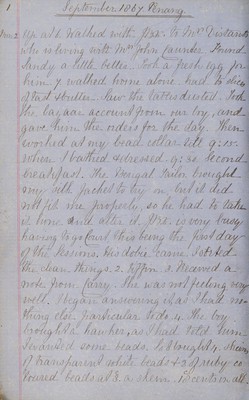 1
September 1887 Penang.
Up at 6. Walked with to Mrs
who is living with Mrs John Found
a little better. Took a fresh egg for
him & walked home alone. Had a slice
of toast & butter. Saw the tables dusted. Took
the bazaar account from our boy, and
gave him the orders for the day. Then
worked at my bead collar till 9:
when I bathed & dressed. 9:30 Second
breakfast. The Bengal Tailor brought
my silk jacket to try on but it did
not fit me properly, so he had to take
it home and alter it. is very busy
having to go Court this being the first day
of the Sessions. dobie came I sorted
the clean things. 2. Tiffin. 3. Received a
note from Carry. She was not feeling very
well. I began answering it as I had no-
thing else particular to do. 4. The boy
brought a hawker, as I had told him
I wanted some beads. So I bought 4 skeins
of transparent white beads & 3 of ruby co
loured beads at 3. a skein. 10 cents on all